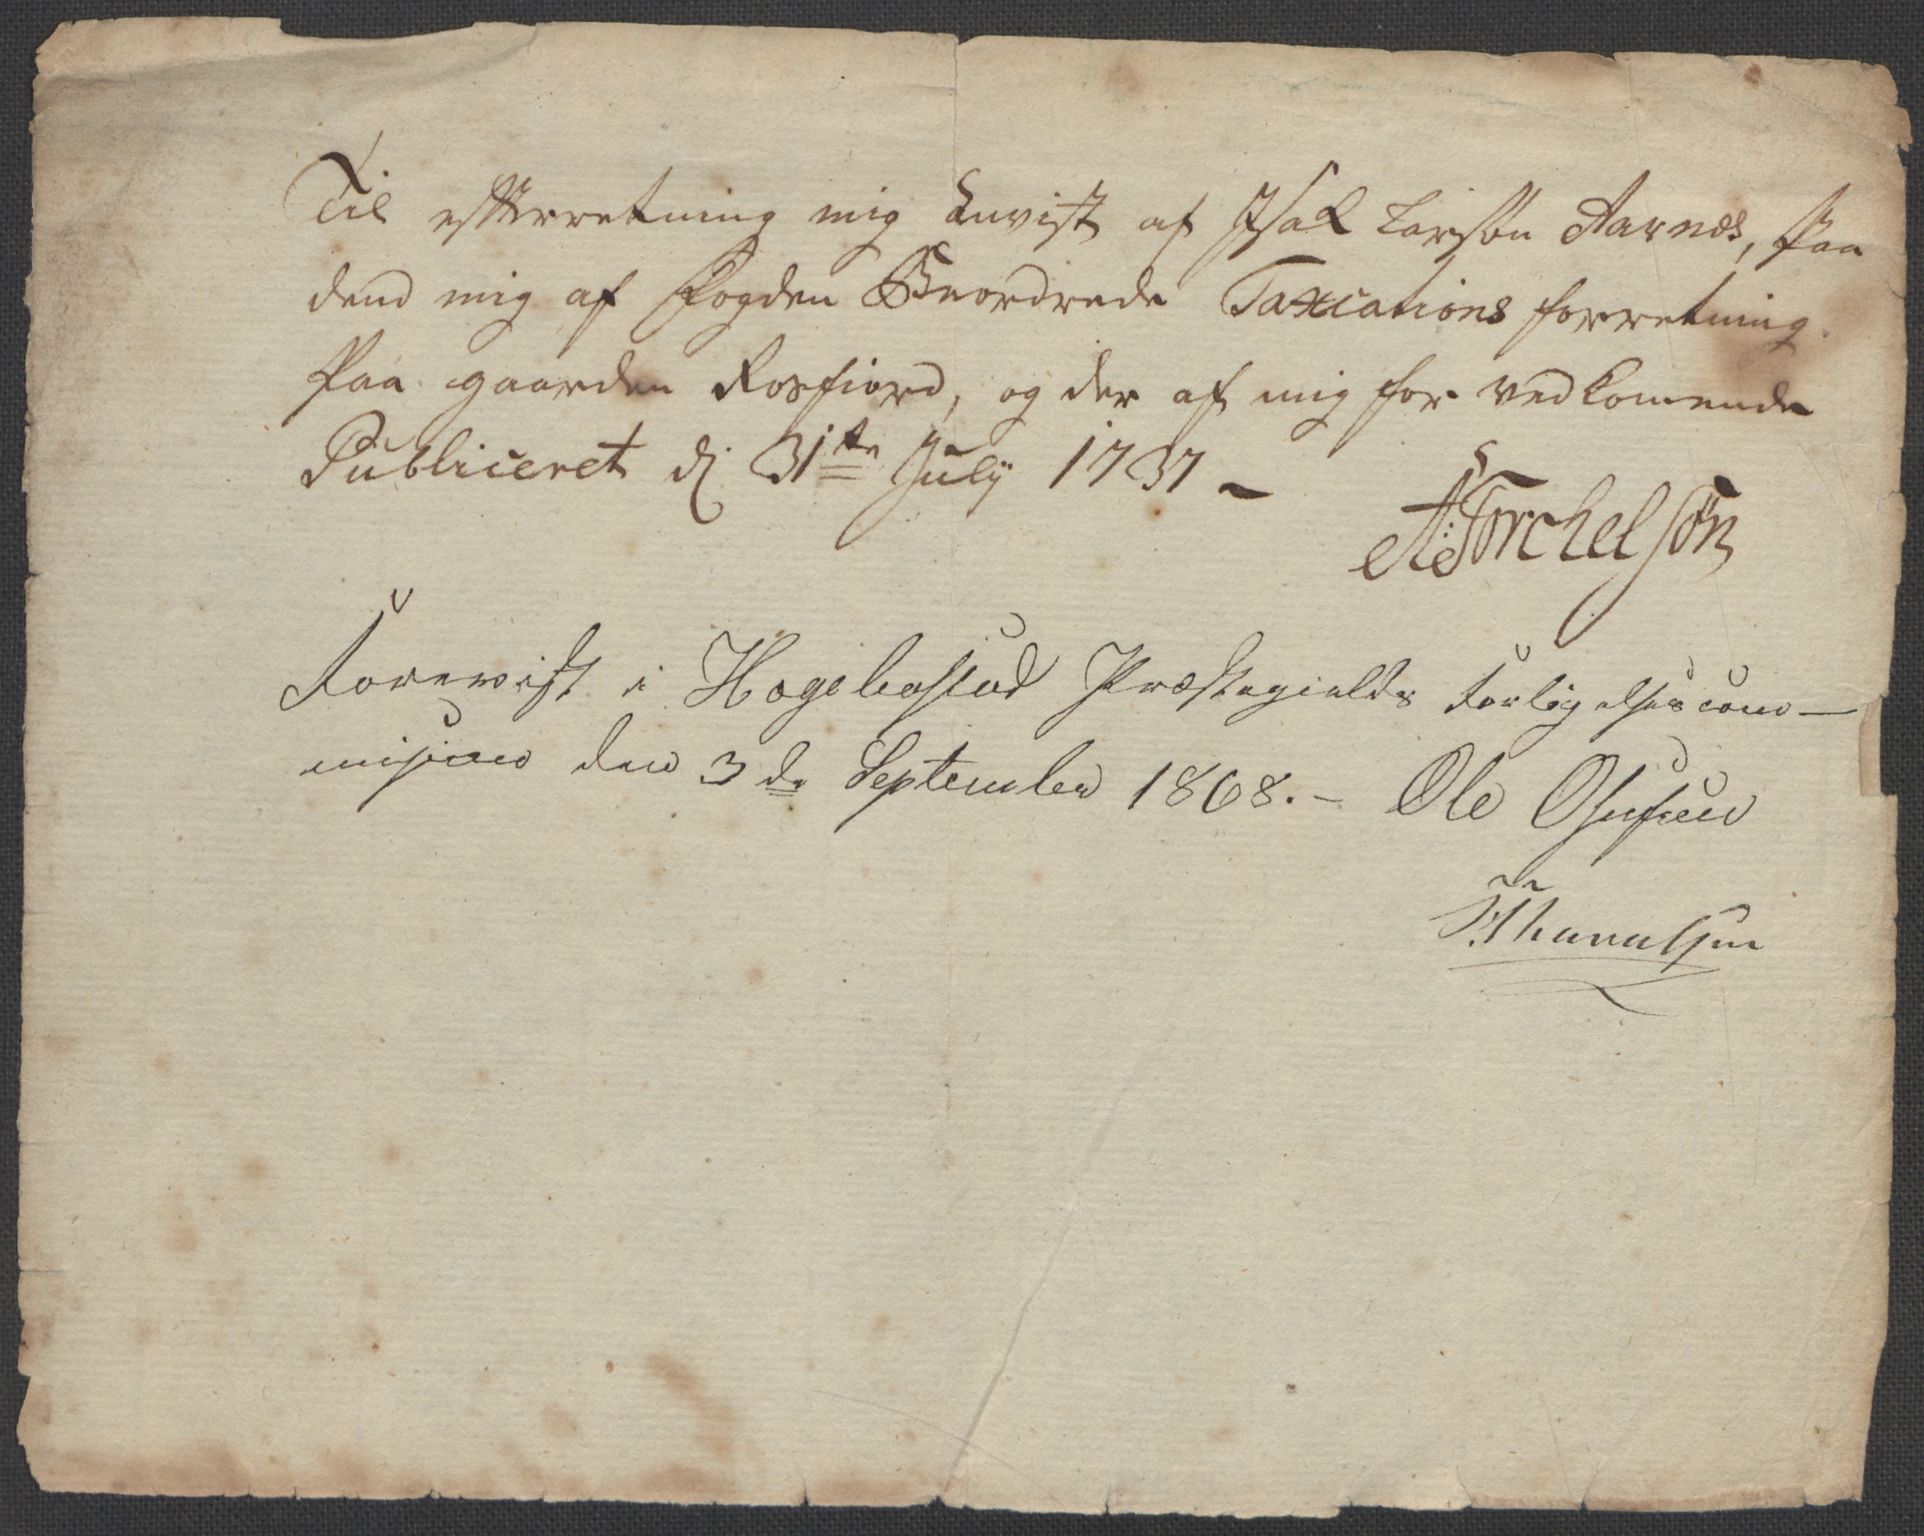 Til efterretning mig Anvist af Isak Larsøn Aarnes, paa
dend mig af Fogden Beordrede Taxcations forretning
Paa gaarden Rosfiord, og der af mig for vedkomende
Publiceret d 31te July 1737 –
A: Torchelsøn
Forevist i Hægebostad Præstegields Forligelsescom—
mision den 3de September 1868. – Ole Osufsen